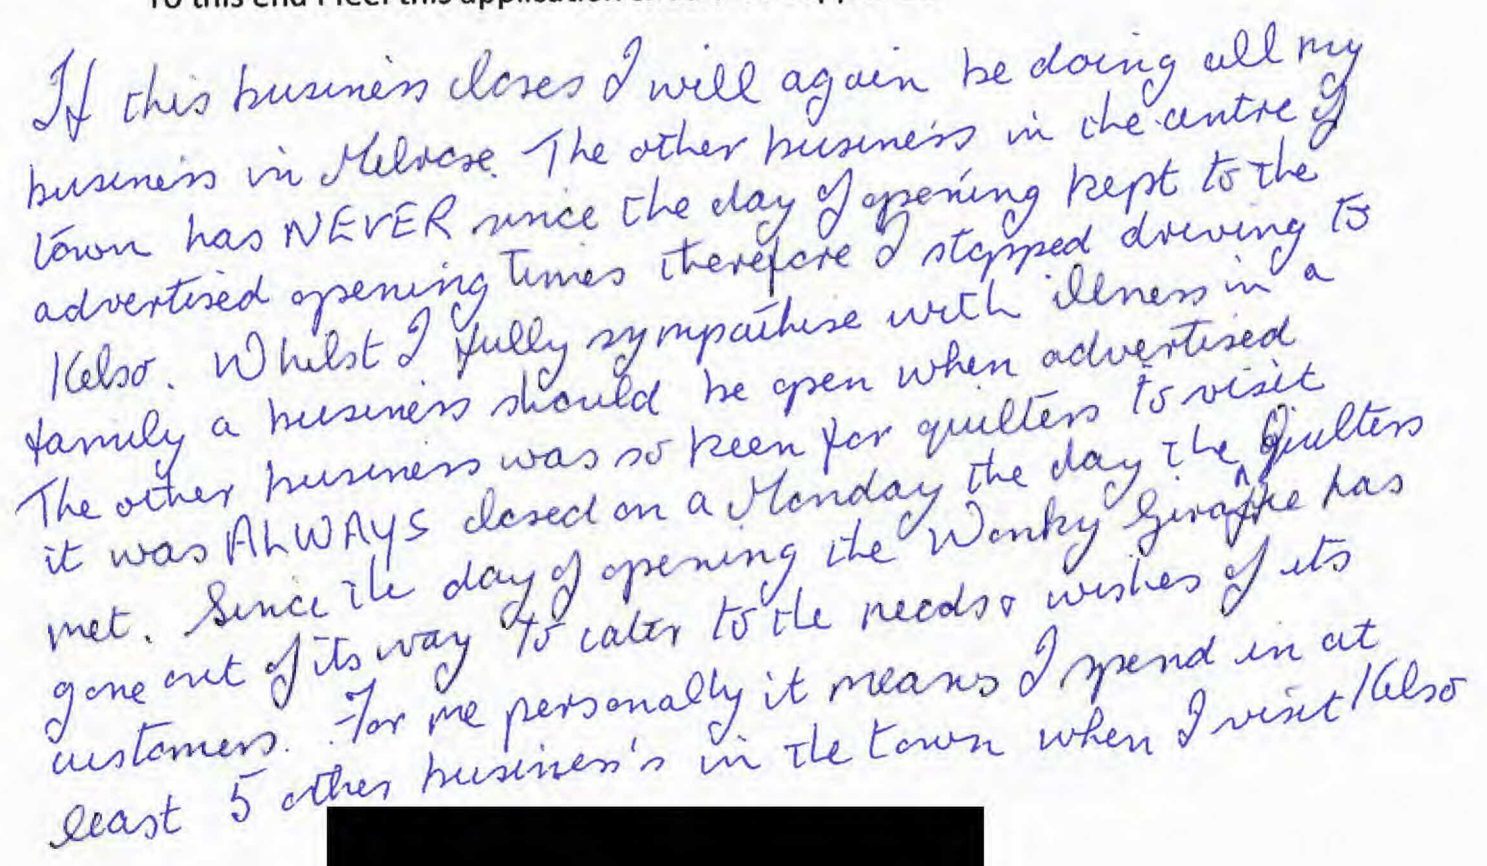 To this end I feel this application
If this business closes I will again be doing all my
business in Melrose. The other business in the centre of
town has NEVER since the day of opening kept to the
advertised opening times therefore I stopped driving to
Kelso. Whilst I fully sympathise with illness in a
family a business should be open when advertised
The other business was so keen for quilters to visit
it was ALWAYS closed on a Monday the day the ^ Quilters
met. Since the day of opening the Wonky Giraffe has
gone out of its way to cater to the needs & wishes of its
customers. For me personally it means I spend in at
least 5 other business's in the town when I visit Kelso